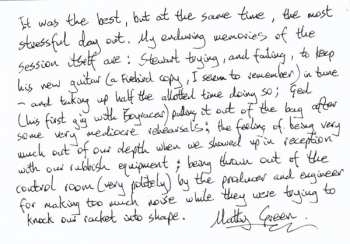 It was the best, but at the same time, the most
stressful day out. My enduring memories of the
session itself are: Stewart trying, and failing, to keep
his new guitar (a Firebird copy, I seem to remember) in tune
- and taking up half the allotted time doing so; Ged
(his first gig with Bogracer) pulling it out of the bag after
some very mediocre rehearsals; the feeling of being very
much out of our depth when we showed up in reception
with our rubbish equipment; being thrown out of the
control room (very politely) by the producer and engineer
for making too much noise while they were trying to
knock our racket into shape. Matty Green.